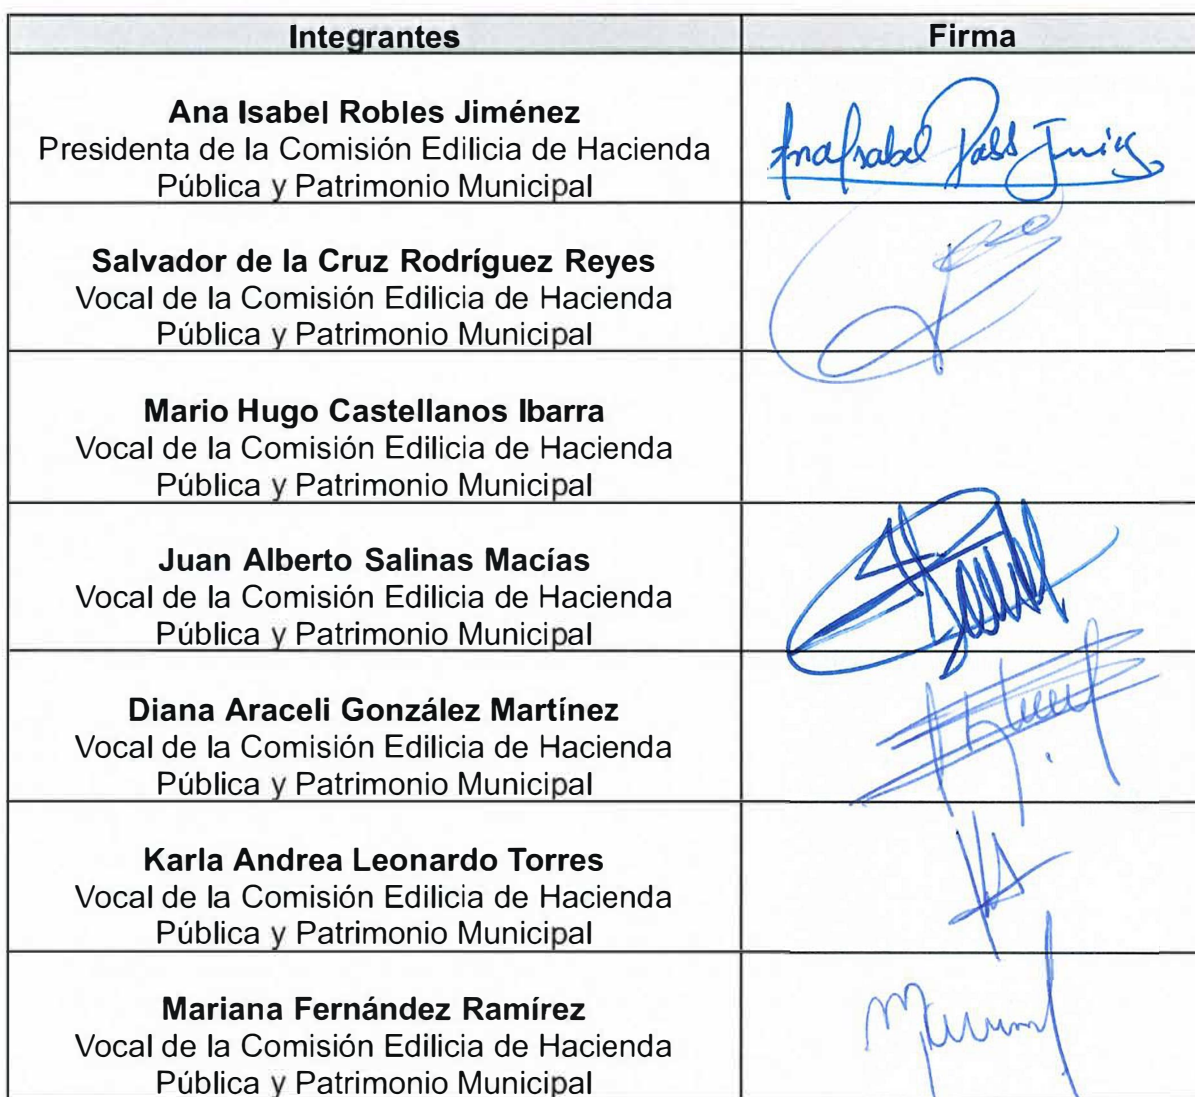 Integrantes Firma
Ana Isabel Robles Jiménez
Presidenta de la Comisión Edilicia de Hacienda
Pública y Patrimonio Municipal
Salvador de la Cruz Rodríguez Reyes
Vocal de la Comisión Edilicia de Hacienda
Pública y Patrimonio Municipal
Mario Hugo Castellanos Ibarra
Vocal de la Comisión Edilicia de Hacienda
Pública y Patrimonio Municipal
Juan Alberto Salinas Macías
Vocal de la Comisión Edilicia de Hacienda
Pública y Patrimonio Municipal
Diana Araceli González Martínez
Vocal de la Comisión Edilicia de Hacienda
Pública y Patrimonio Municipal
Karla Andrea Leonardo Torres
Vocal de la Comisión Edilicia de Hacienda
Pública y Patrimonio Municipal
Mariana Fernández Ramírez
Vocal de la Comisión Edilicia de Hacienda
Pública y Patrimonio Municipal